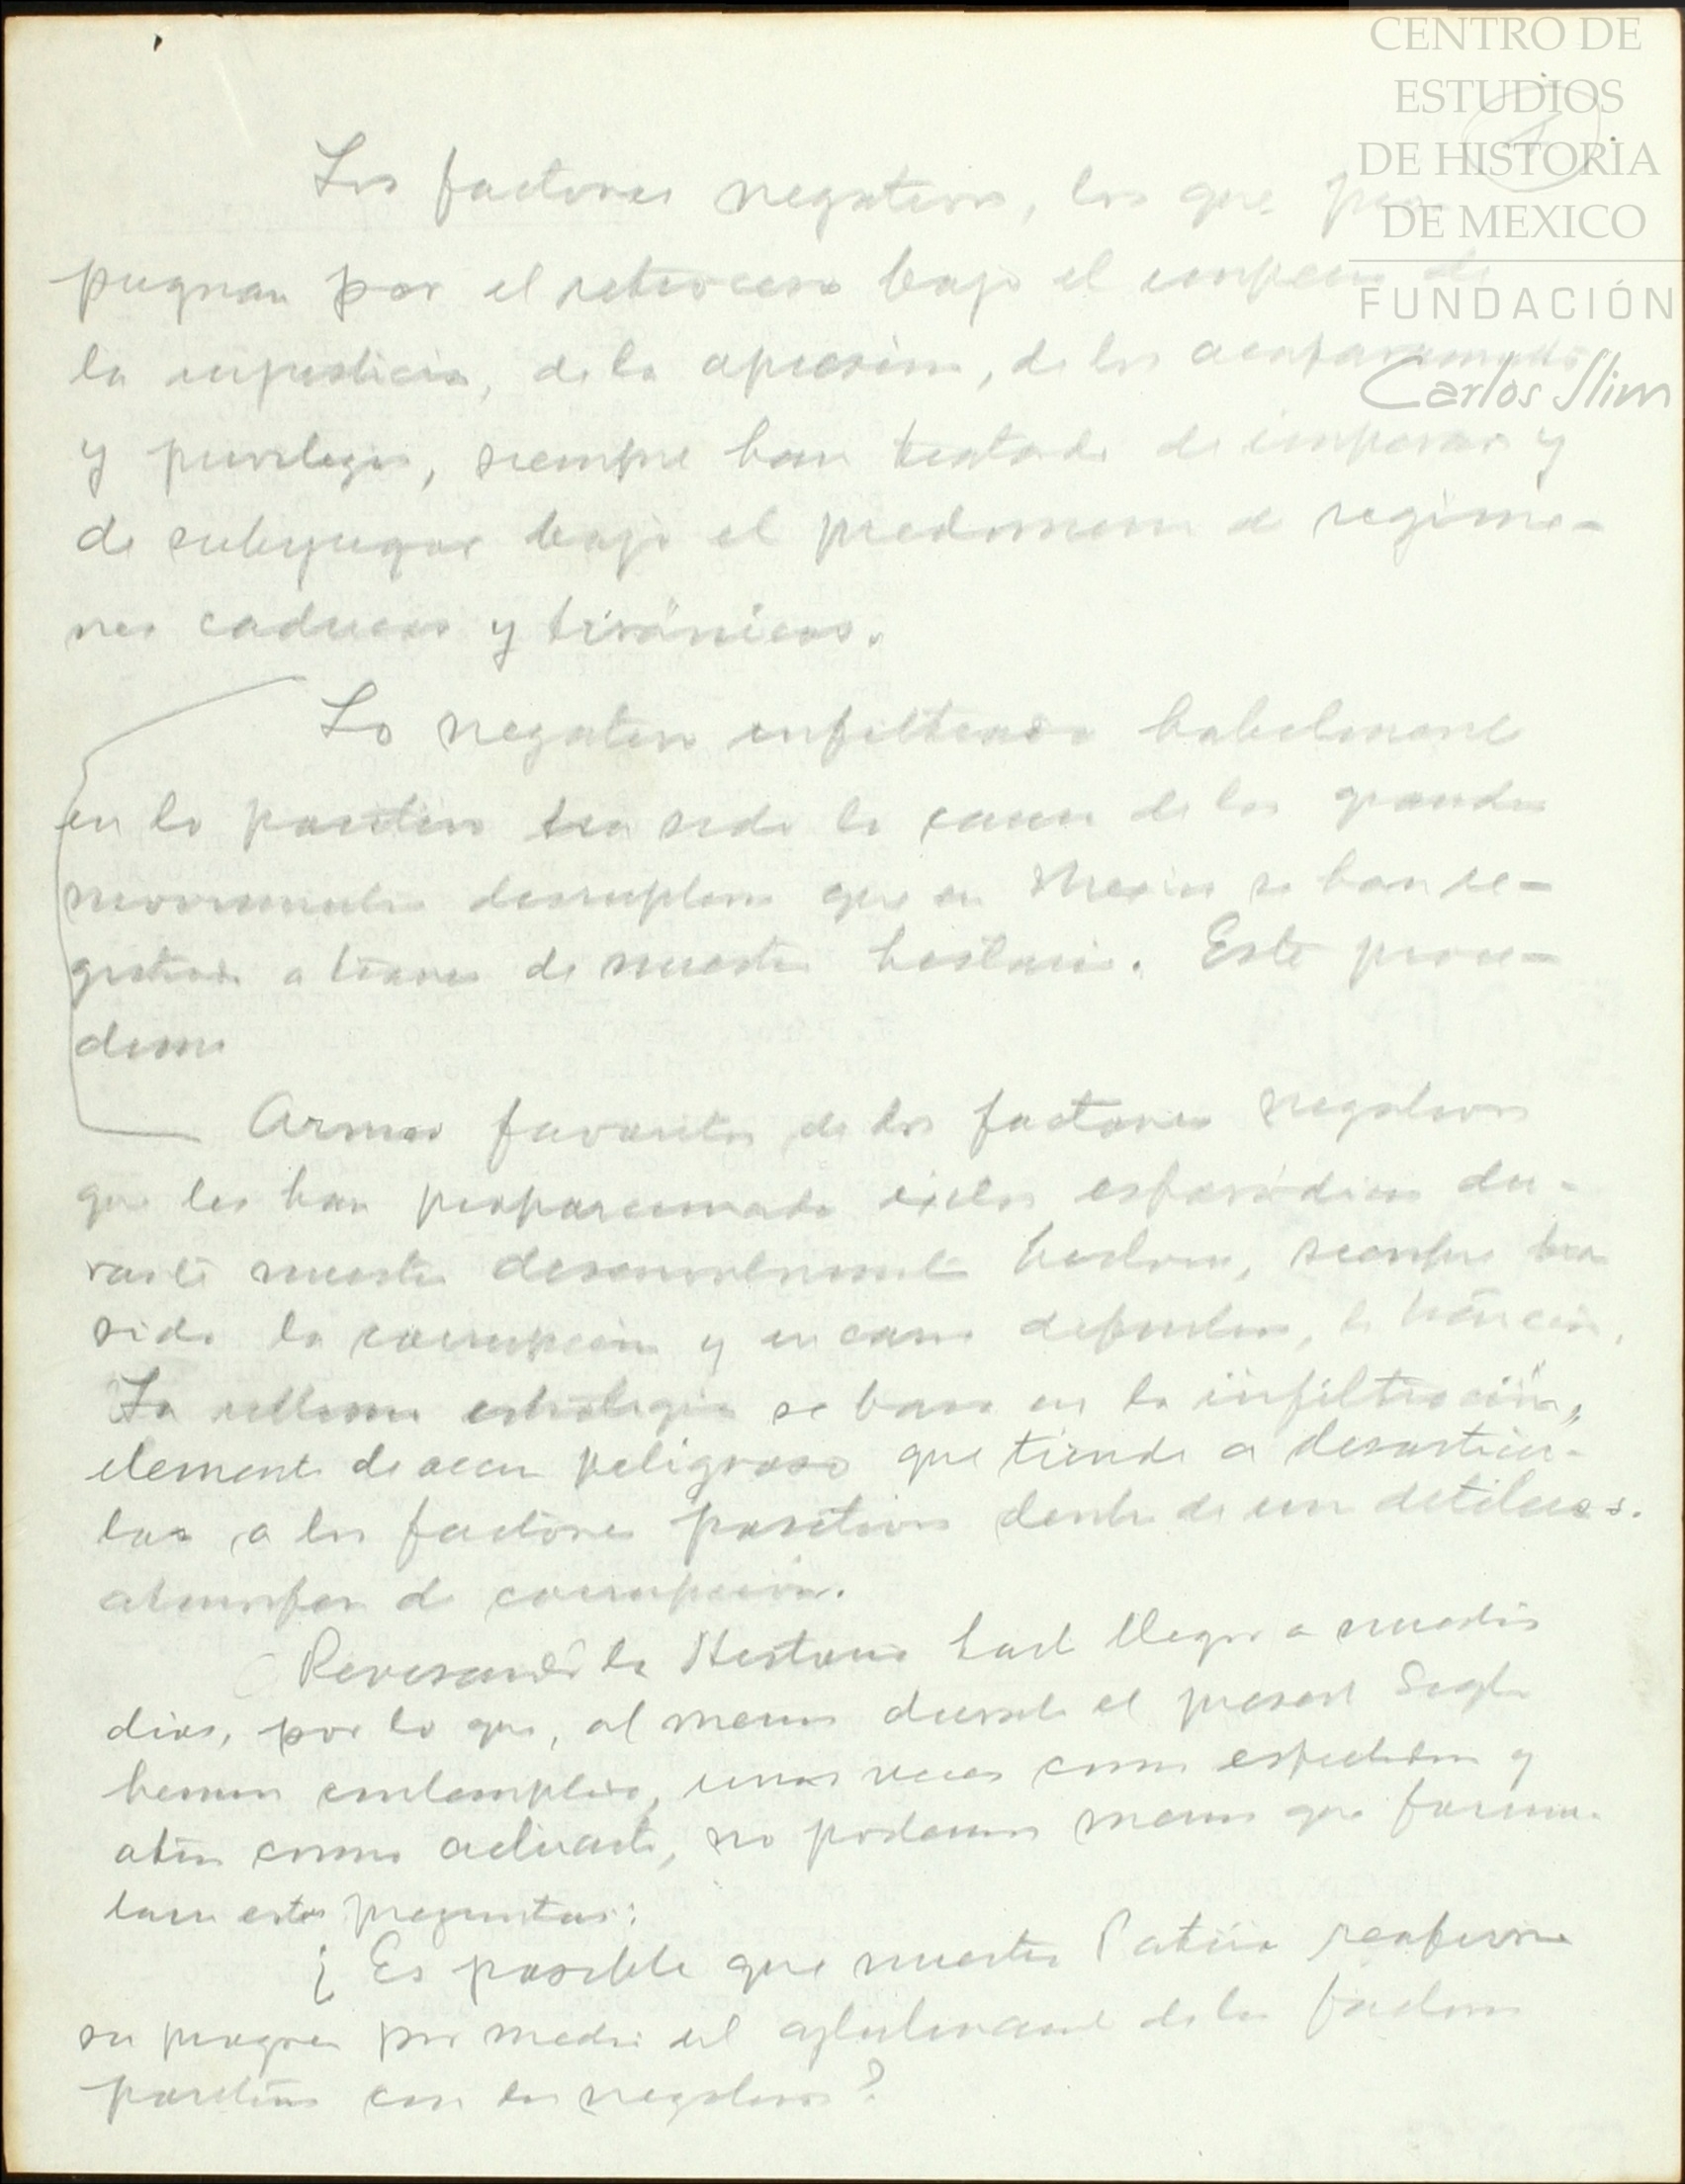 CENTRO DE
ESTUDIOS
DE HISTORIA
DE MEXICO
FUNDACIÓN
Carlos Slim
Los factores negativos, los que pro-
pugnan por el retroceso bajo el imperio de
la injusticia, de la opresión, de los acaparamientos
y privilegios, siempre han tratado de imperar y
de subyugar bajo el predominio de regime-
nes caducos y tiránicos.
Lo negativo infiltrado habilmente
en lo positivo ha sido la causa de los grandes
movimientos que en Mexico se han re-
gistrado a traves de nuestra historia. Este proce-
Armas favoritas de los factores negativos
que les han proporcionado éxitos esporádicos du-
rante nuestro desenvolvimiento historico, siempre ha
sido la corrupción y en caso definitivo, la traición.
La estrategia se basa en la infiltración,
elemento de accion peligroso que tiende a desarticu-
lar a los factores positivos dentro de un
de corrupción.
Revisando la Historia hasta llegar a nuestros
dias, por lo que, al menos durante el presente Siglo
hemos contemplado, unas veces como espectadores y
otras como actuantes, no podemos menos que formu-
larnos estas preguntas:
¿Es posible que nuestra Patria reafirme
su progreso por medio del aglutinante de los factores
positivos con los negativos?